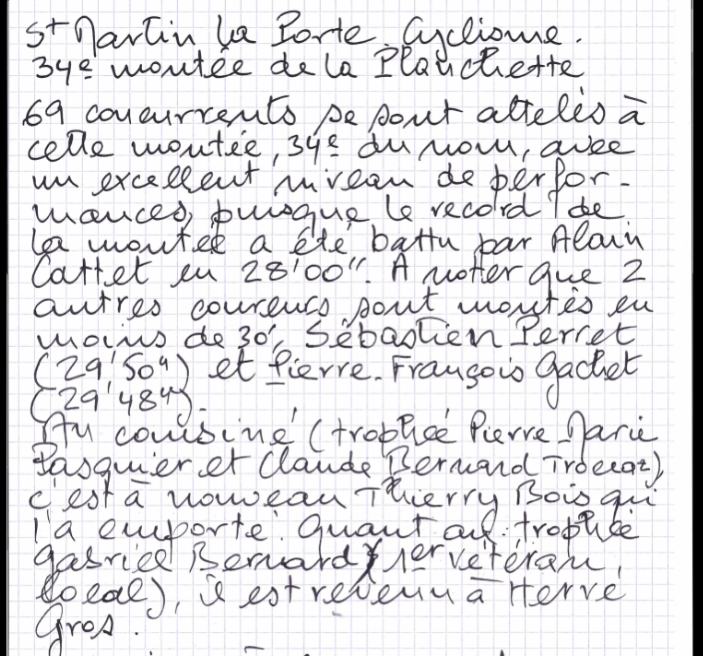 St Martin la Porte. Cyclisme.
34e montée de la Planchette
69 concurrents se sont attelés à
cette montée, 34e du nom, avec
un excellent niveau de perfor-
mances, puisque le record de
la montée a été battu par Alain
Cattet en 28'00". A noter que 2
autres coureurs sont montés en
moins de 30', Sébastien Perret
(29'50") et Pierre-François Gachet
(29'48").
Au combiné (trophée Pierre Marie
Pasquier et Claude Bernard Troccaz),
c'est à nouveau Thierry Bois qui
l'a emporté. Quant au trophée
Gabriel Bernard (1er vétéran
local), il est revenu à Hervé
Gros.